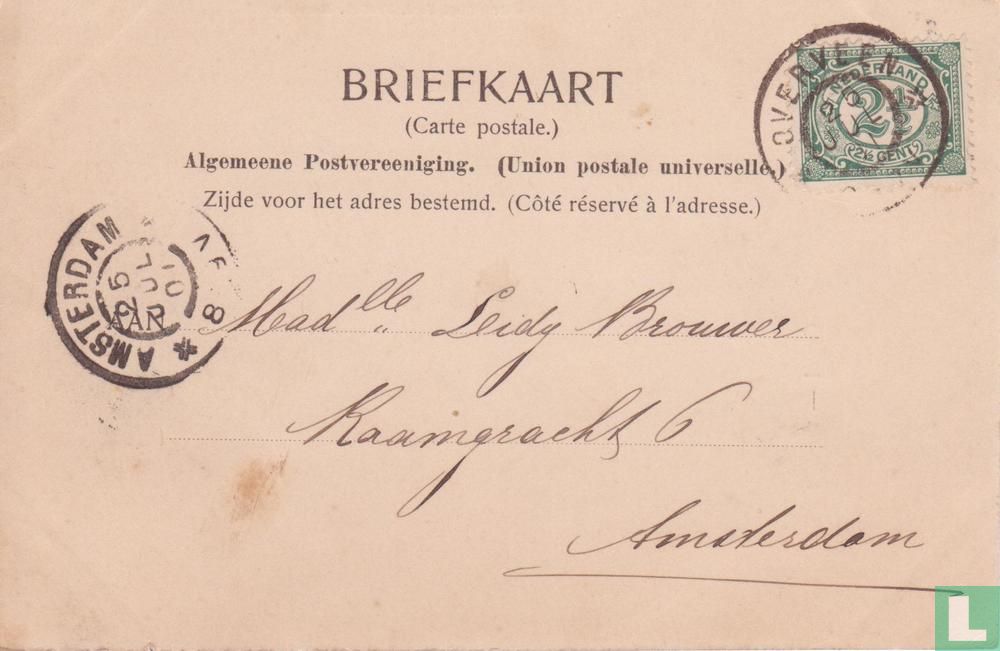 BRIEFKAART
(Carte postale.)
Algemeene Postvereeniging. (Union postale universelle.)
Zijde voor het adres bestemd. (Côté réservé à l'adresse.)
OVERVEEN
NEDERLAND
2½
(2½ CENT)
AMSTERDAM
8
25
JUL
01
AAN
Mad^lle Leidy Brouwer
Raamgracht 6
Amsterdam
L